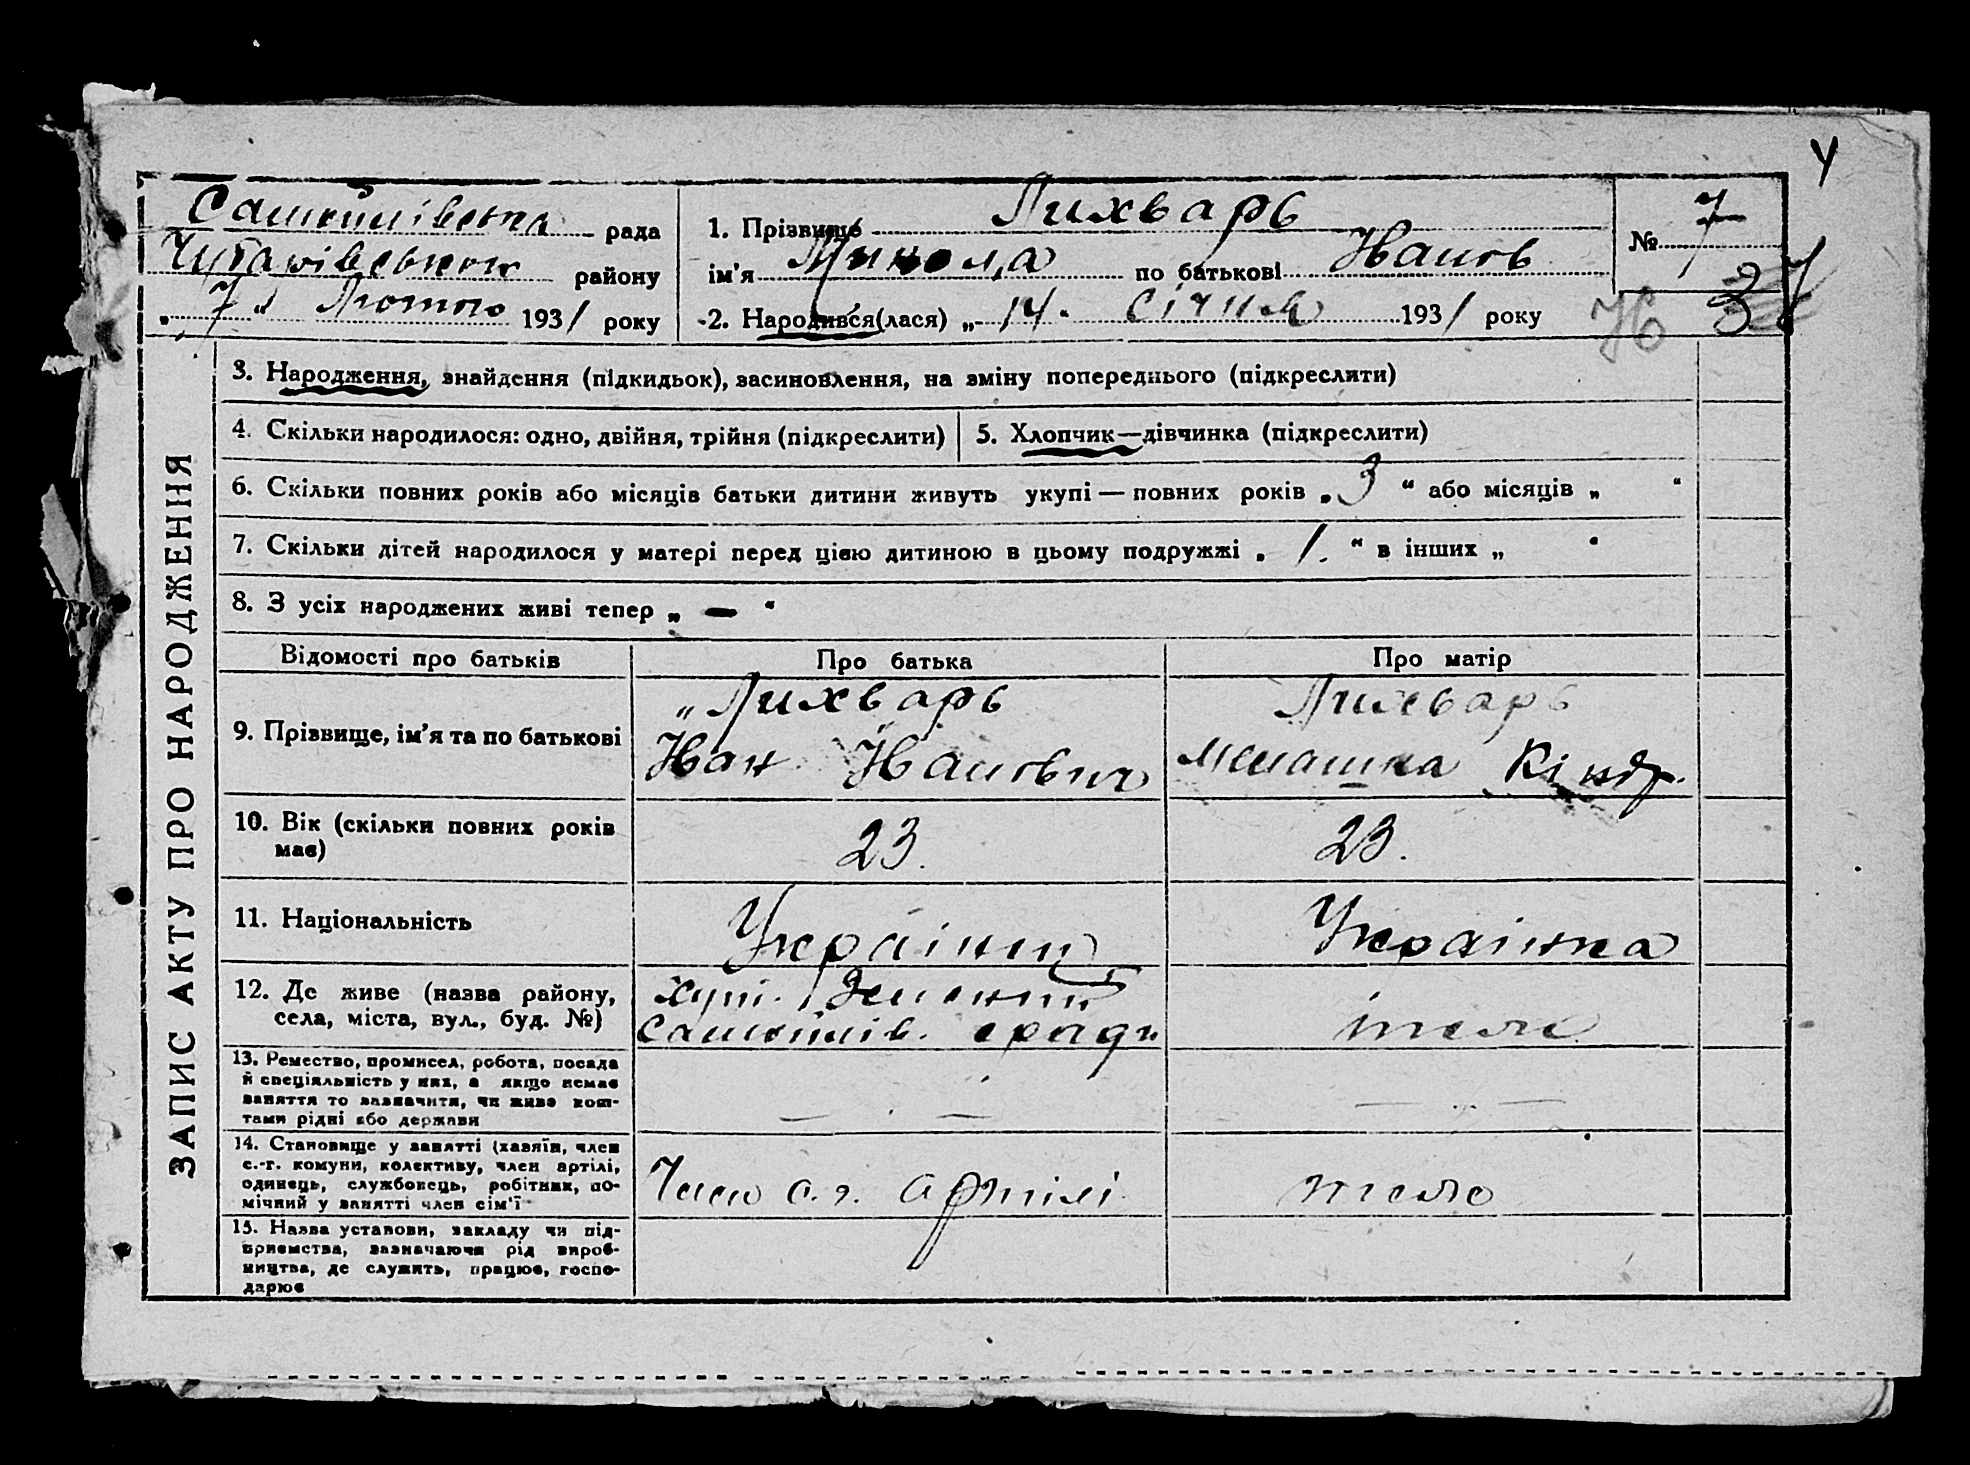 4
Самійлівська рада
Чутівського району
„ 7 " Лютого 1931 року
1. Прізвище Лихварь
ім'я Микола по батькові Іванов
2. Народився(лася) „ 14. Січня 1931 року
№ 7
3
3. Народження, знайдення (підкидьок), засиновлення, на зміну попереднього (підкреслити)
4. Скільки народилося: одно, двійня, трійня (підкреслити)
5. Хлопчик—дівчинка (підкреслити)
6. Скільки повних років або місяців батьки дитини живуть укупі — повних років „ 3 " або місяців „ "
7. Скільки дітей народилося у матері перед цією дитиною в цьому подружжі „ 1. " в інших „ "
8. З усіх народжених живі тепер „ — "
ЗАПИС АКТУ ПРО НАРОДЖЕННЯ
Відомості про батьків
Про батька
Про матір
9. Прізвище, ім'я та по батькові
„ Лихварь
Іван Іванович
Лихварь
Мелашка Кіндр.
10. Вік (скільки повних років
має)
23.
23.
11. Національність
Українець
Українка
12. Де живе (назва району,
села, міста, вул., буд. №)
хут.
Самійлів. с/ради
теж
13. Ремество, промисел, робота, посада
й спеціяльність у них, а якщо немає
заняття то зазначити, чи живе кош-
тами рідні або держави
— . —
— . —
14. Становище у занятті (хазяїн, член
с.-г. комуни, колективу, член артілі,
одинець, службовець, робітник, по-
мічний у занятті член сім'ї
Член с. г. артілі
теж
15. Назва установи, закладу чи під-
приємства, зазначаючи рід вироб-
ництва, де служить, працює, госпо-
дарює